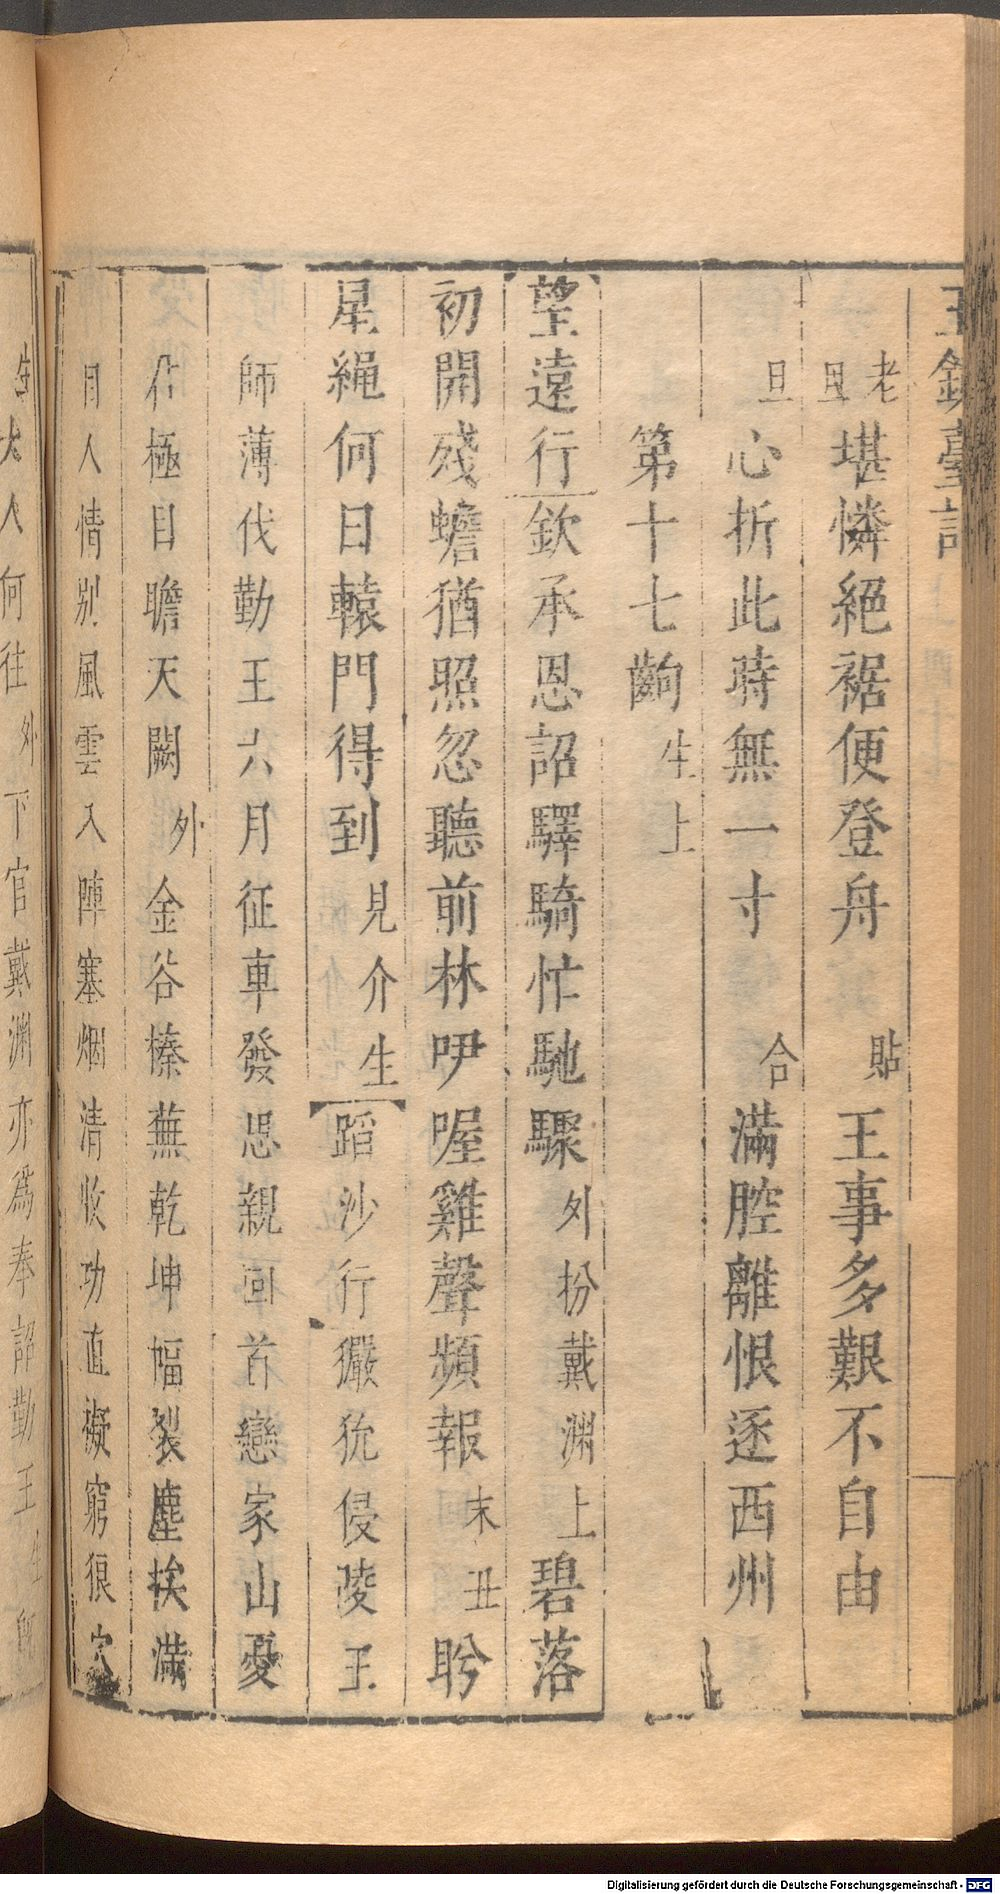 玉鏡臺記
老旦堪憐絕裾便登舟 貼 王事多艱不自由
旦 心折此時無一寸 合 滿腔離恨逐西州
第十七齣 生上
望遠行 欽承恩詔驛騎忙馳驟 外扮戴渊上 碧落
初開殘蟾猶照忽聽前林咿喔雞聲頻報 末丑 盻
星繩何日轅門得到 見介生 蹈沙行 玁狁侵陵王
師薄伐勤王六月征車發思親回首戀家山憂
極目瞻天闕 外 金谷榛蕪乾坤幅裂塵埃滿
目人情別風雲入陣塞烟清收功直擬窮狼穴
生大人何往 外 下官戴渊亦爲奉詔勤王 生
Digitalisierung gefördert durch die Deutsche Forschungsgemeinschaft - DFG